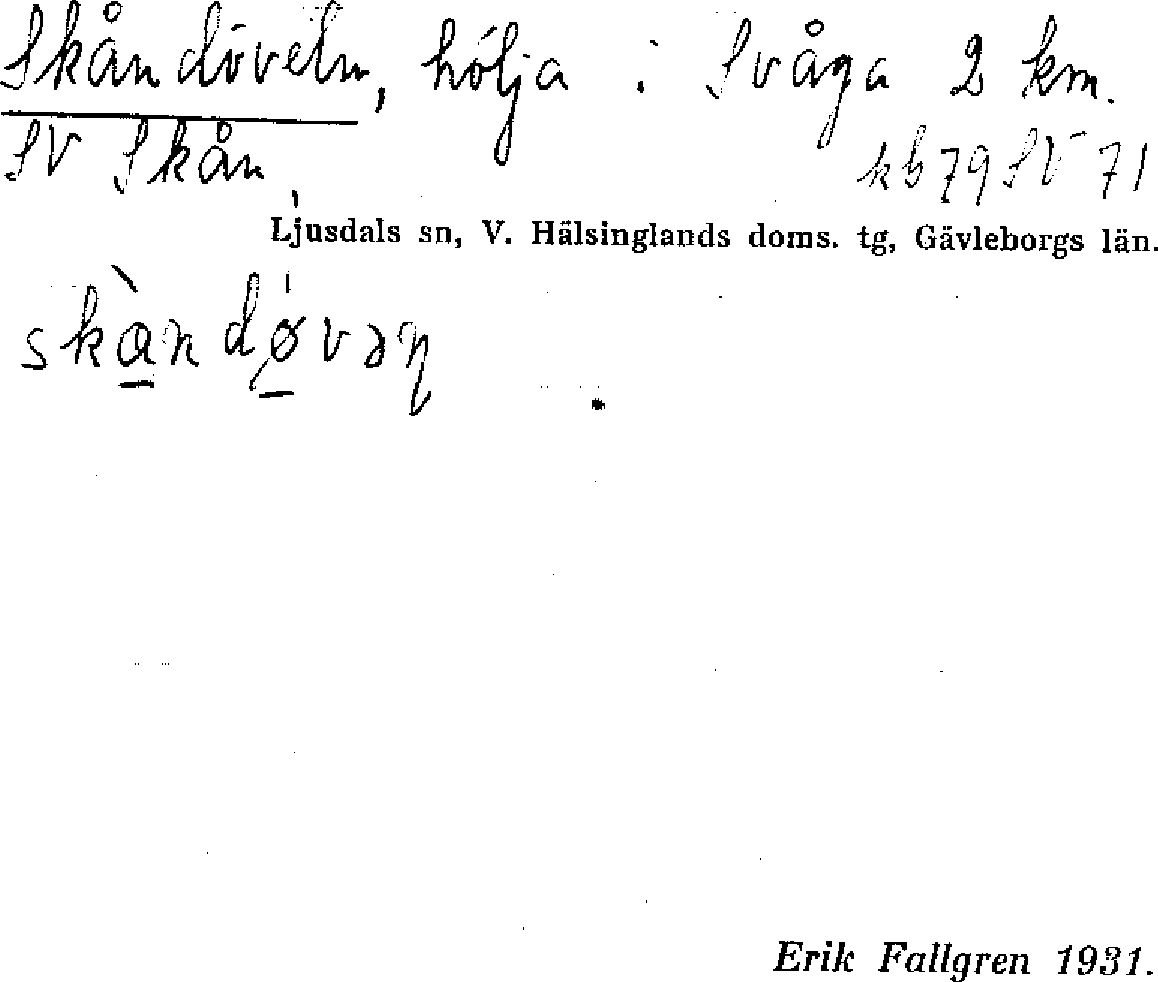 Skåndöveln, hölja i Svåga 2 km.
SV Skån.
kb 79 SV 71
Ljusdals sn, V. Hälsinglands doms. tg, Gävleborgs län.
skàndø̀vəɳ
Erik Fallgren 1931.